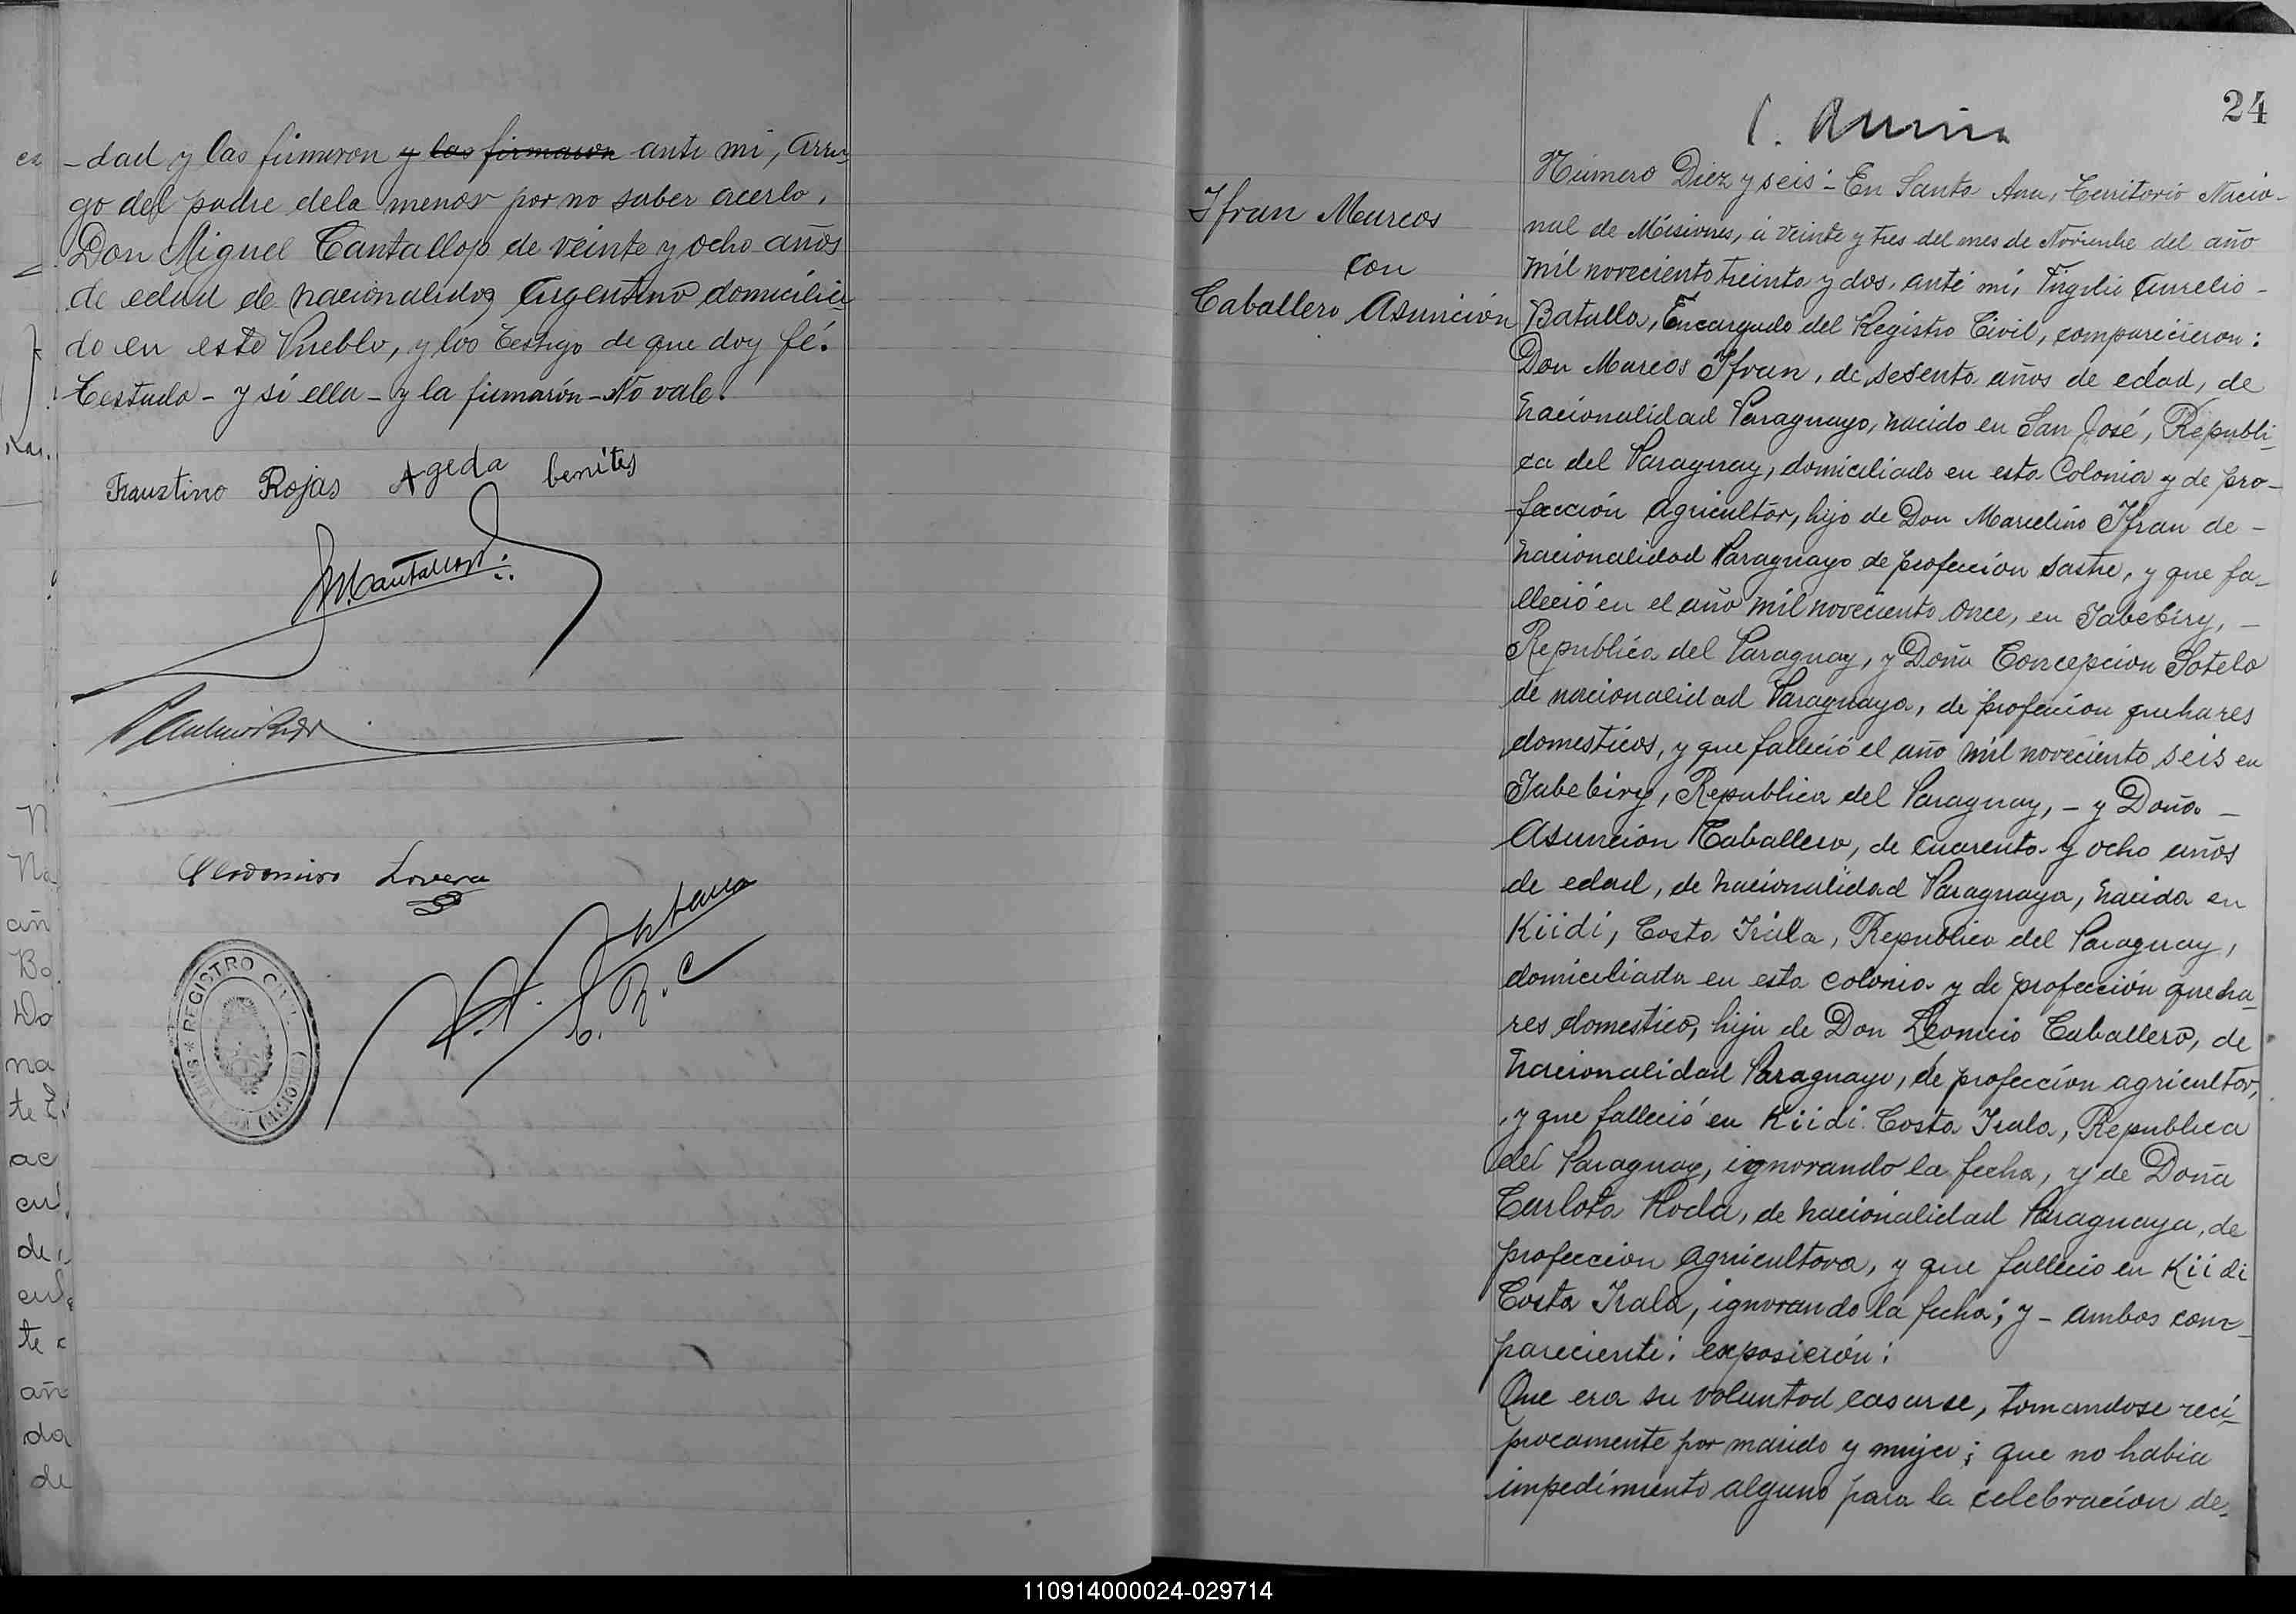 -dad y las firmaron y las firmaron ante mi, arru-
go del padre dela menor por no saber acerlo,
Don Miguel Cantallop de veinte y ocho años
de edad de nacionalidaz Argentino domicilia
do en este Pueblo, y los testigo de que doy fé.
Testado - y si ella - y la firmarón - No vale.
Fraustino Rojas Ageda benites
M. Cantallop
Clodomiro Lovera
E. R. C
* REGISTRO CIVIL
(MISIONES)
24
Ifran Marcos
con
Caballero Asunción
Número Diez y seis: - En Santa Ana, Territorio Nacio-
nal de Misiones, á veinte y tres del mes de Noviembre del año
mil noveciento treinta y dos, ante mi, Virgilio Aurelio -
Batalla, Encargado del Registro Civil, comparecieron:
Don Marcos Ifran, de sesenta años de edad, de
nacionalidad Paraguayo, nacido en San José, Republi-
ca del Paraguay, domiciliado en esta Colonia y de pro-
fección agricultor, hijo de Don Marcelino Ifran de -
nacionalidad Paraguayo de profección sastre, y que fa-
lleció en el año mil noveciento once, en Tabebiry, -
Republica del Paraguay, y Doña Concepcion Sotelo
de nacionalidad Paraguaya, de profección quehares
domesticos, y que falleció el año mil noveciento seis en
Tabebiry, Republica del Paraguay, - y Doña -
Asuncion Caballero, de cuarenta y ocho años
de edad, de nacionalidad Paraguaya, nacida en
Kiidi, Costa Irála, Republica del Paraguay,
domiciliada en esta colonia y de profección queha-
res domestico, hija de Don Leoncio Caballero, de
nacionalidad Paraguayo, de profección agricultor,
y que falleció en Kiidi Costa Irala, Republica
del Paraguay, ignorando la fecha, y de Doña
Carlota Roda, de nacionalidad Paraguaya, de
profeccion agricultora, y que fallecio en Kiidi
Costa Irala, ignorando la fecha; y - ambos com-
pareciente: exposición:
Que era su voluntad casarse, tomandose reci-
procamente por marido y mujer; que no habia
impedimento alguno para la celebración de-
110914000024-029714